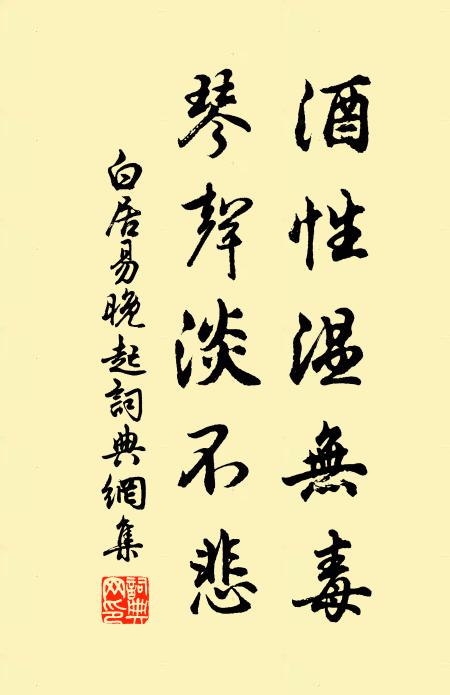 酒性温無毒
琴聲淡不悲
白居易晚起詞典網集
詞典網印